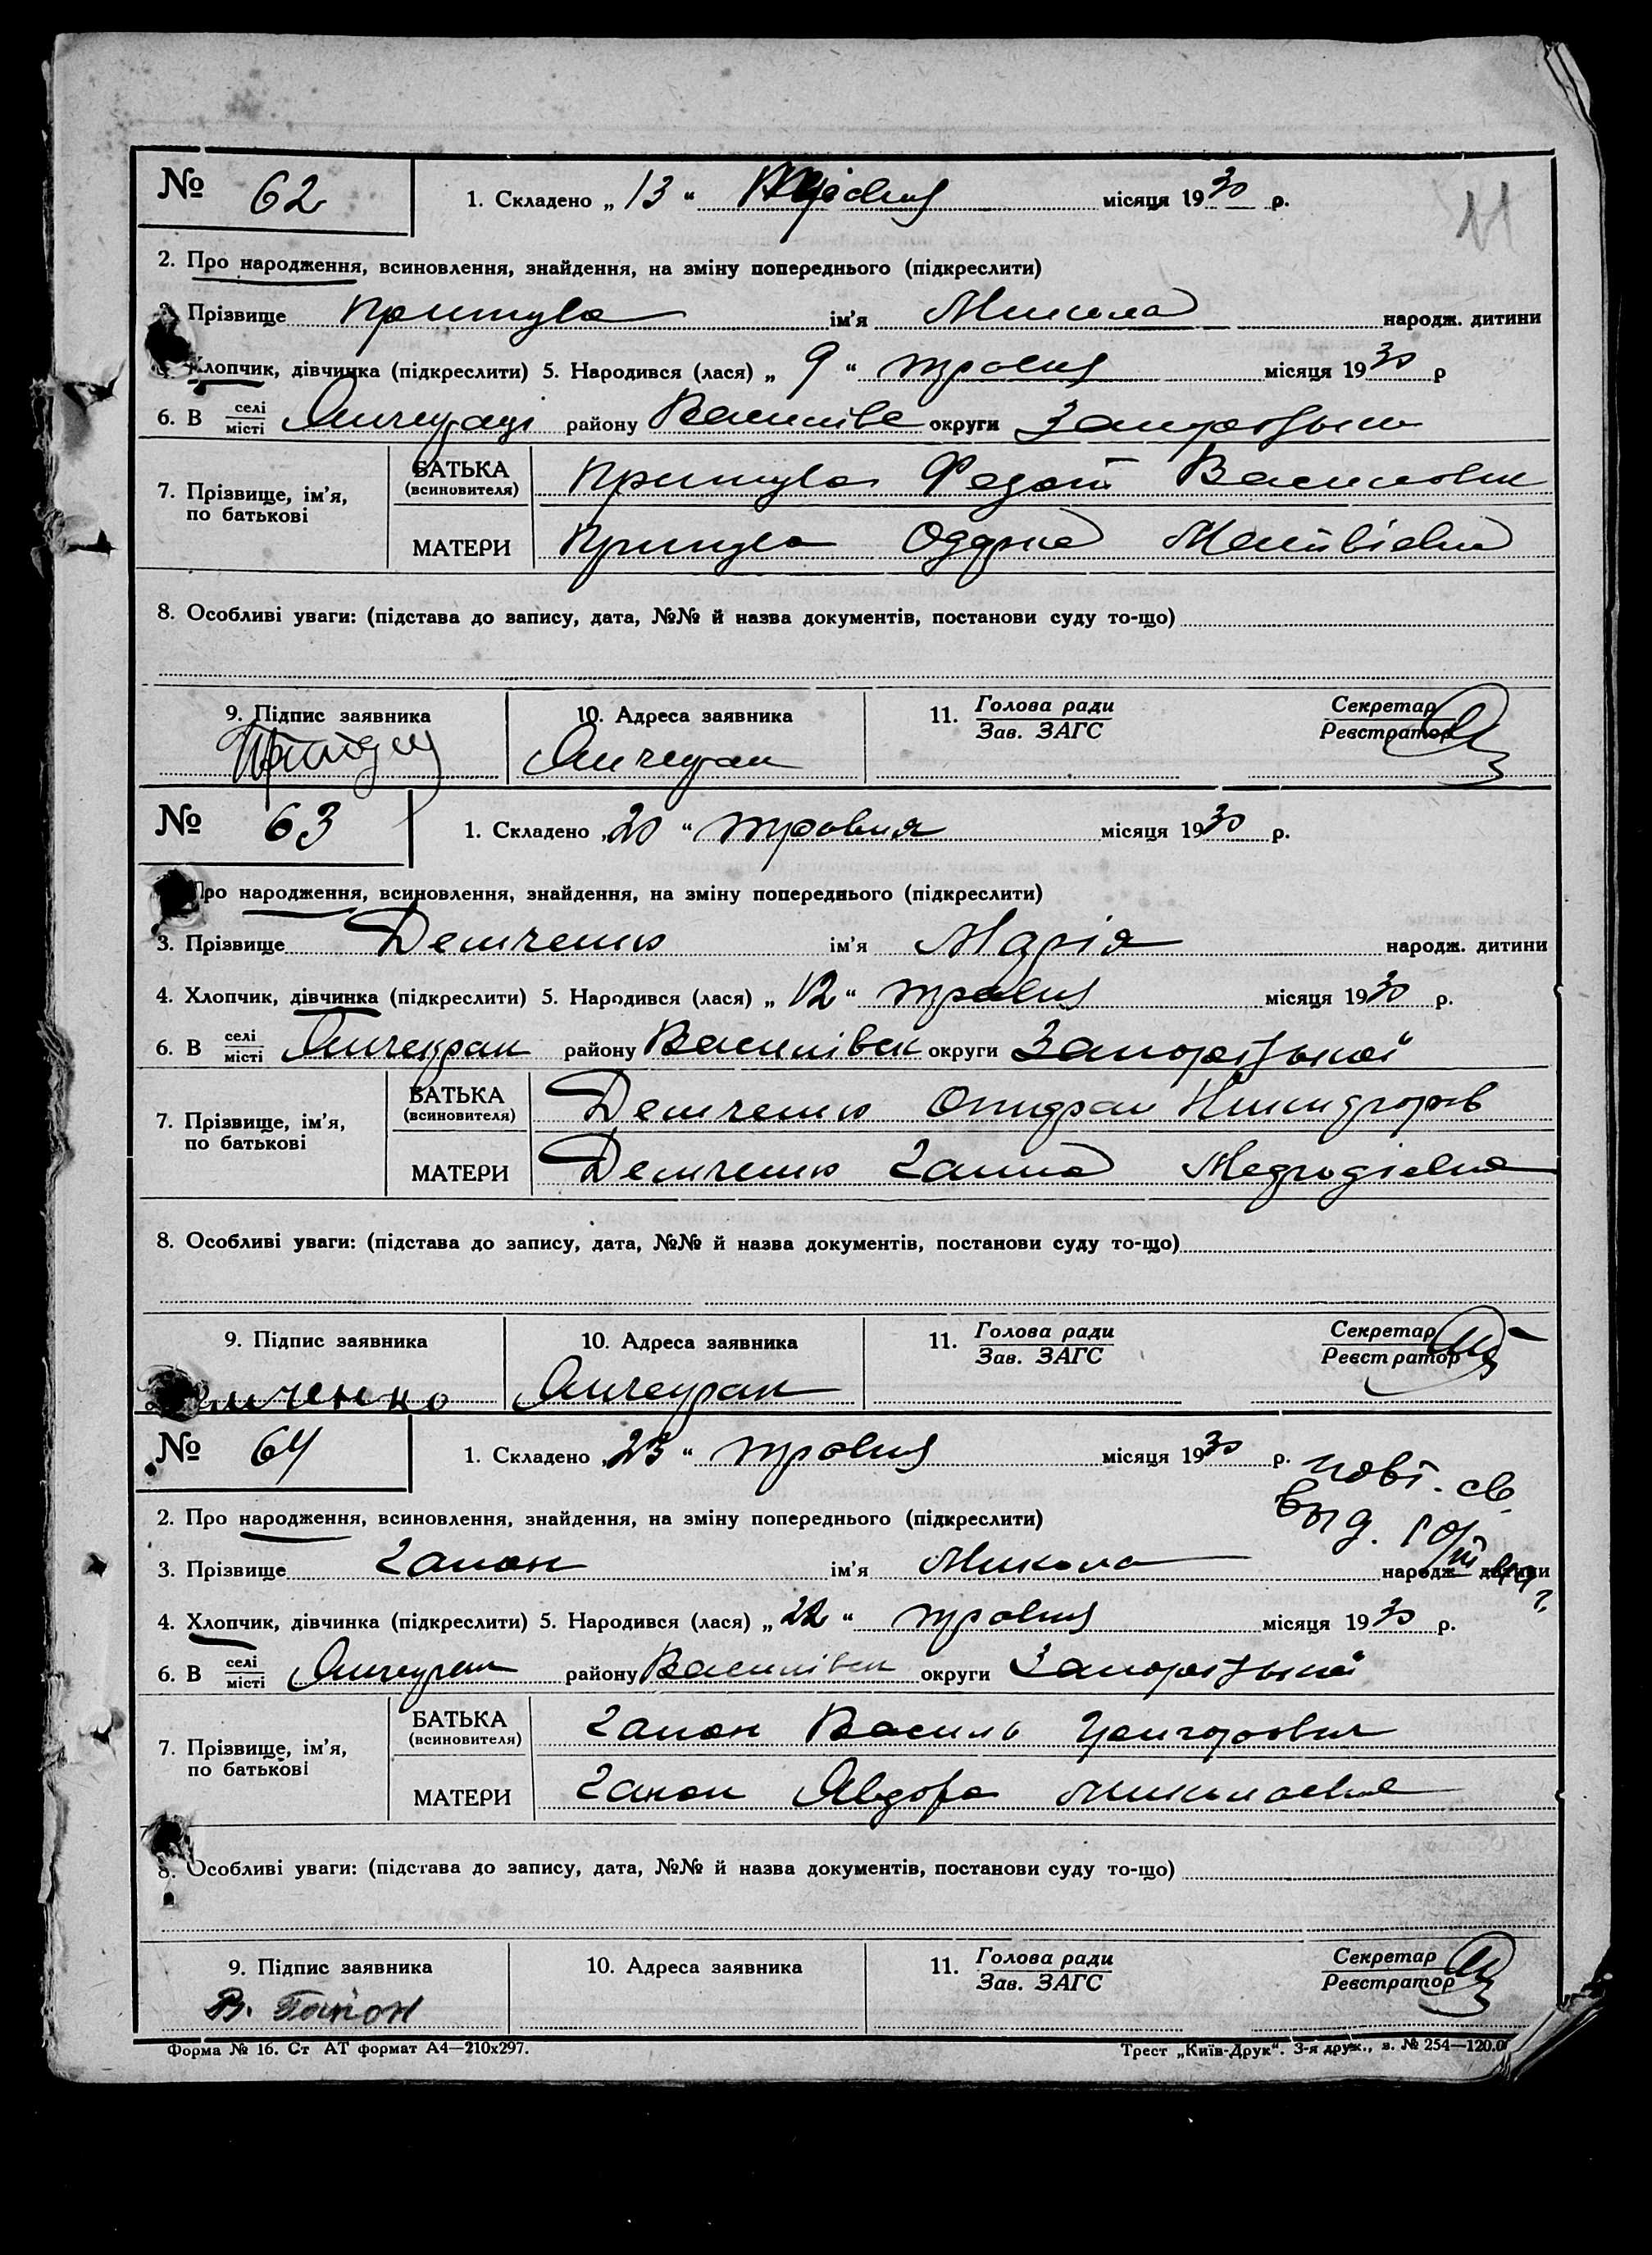 № 62 1. Складено „13“ місяця 1930 р.
11
2. Про народження, всиновлення, знайдення, на зміну попереднього (підкреслити)
Прізвище Притула ім'я Микола народж. дитини
Хлопчик, дівчинка (підкреслити) 5. Народився (лася) „9“ травня місяця 1930 р
6. В селі/місті Янчекраці району Василівс округи Запорізьк
7. Прізвище, ім'я, по батькові БАТЬКА (всиновителя) Притула Федот Василович
МАТЕРИ Притула Одарка Матвієвна
8. Особливі уваги: (підстава до запису, дата, №№ й назва документів, постанови суду то-що)
9. Підпис заявника 10. Адреса заявника 11. Голова ради/Зав. ЗАГС Секретар/Реєстратор
Янчекрак
№ 63 1. Складено „20“ травня місяця 1930 р.
Про народження, всиновлення, знайдення, на зміну попереднього (підкреслити)
3. Прізвище Демченко ім'я Марія народж. дитини
4. Хлопчик, дівчинка (підкреслити) 5. Народився (лася) „12“ травня місяця 1930 р.
6. В селі/місті Янчекрак району Василівськ округи Запорізької
7. Прізвище, ім'я, по батькові БАТЬКА (всиновителя) Демченко
МАТЕРИ Демченко Ганна
8. Особливі уваги: (підстава до запису, дата, №№ й назва документів, постанови суду то-що)
9. Підпис заявника 10. Адреса заявника 11. Голова ради/Зав. ЗАГС Секретар/Реєстратор
Янчекрак
№ 64 1. Складено „23“ травня місяця 1930 р.
повт. св.
выд.
2. Про народження, всиновлення, знайдення, на зміну попереднього (підкреслити)
3. Прізвище Гапон ім'я Микола народж. дитини
4. Хлопчик, дівчинка (підкреслити) 5. Народився (лася) „22“ травня місяця 1930 р.
6. В селі/місті Янчекрак району Василівськ округи Запорізької
7. Прізвище, ім'я, по батькові БАТЬКА (всиновителя) Гапон Василь Григорович
МАТЕРИ Гапон Миколаевна
8. Особливі уваги: (підстава до запису, дата, №№ й назва документів, постанови суду то-що)
9. Підпис заявника 10. Адреса заявника 11. Голова ради/Зав. ЗАГС Секретар/Реєстратор
В. Гапон
Форма № 16. Ст АТ формат А4—210х297. Трест „Київ-Друк“. 3-я друк., з. № 254—120.0